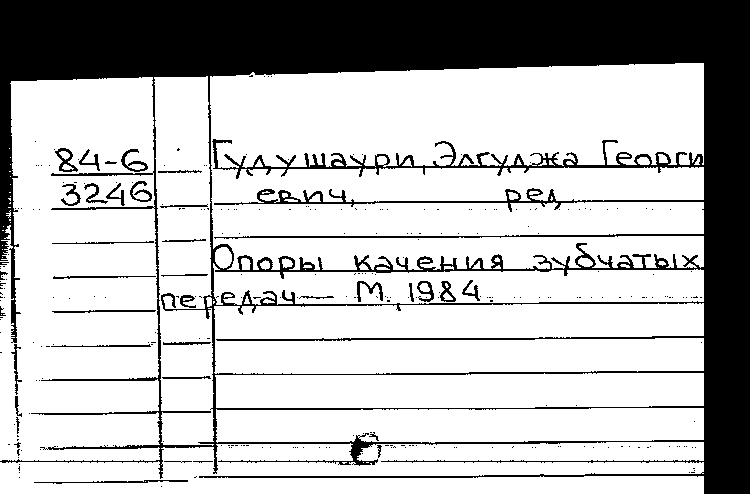 84-6 Гудушаури, Элгуджа Георги
3246 евич, ред
Опоры качения зубчатых
передач — М., 1984.